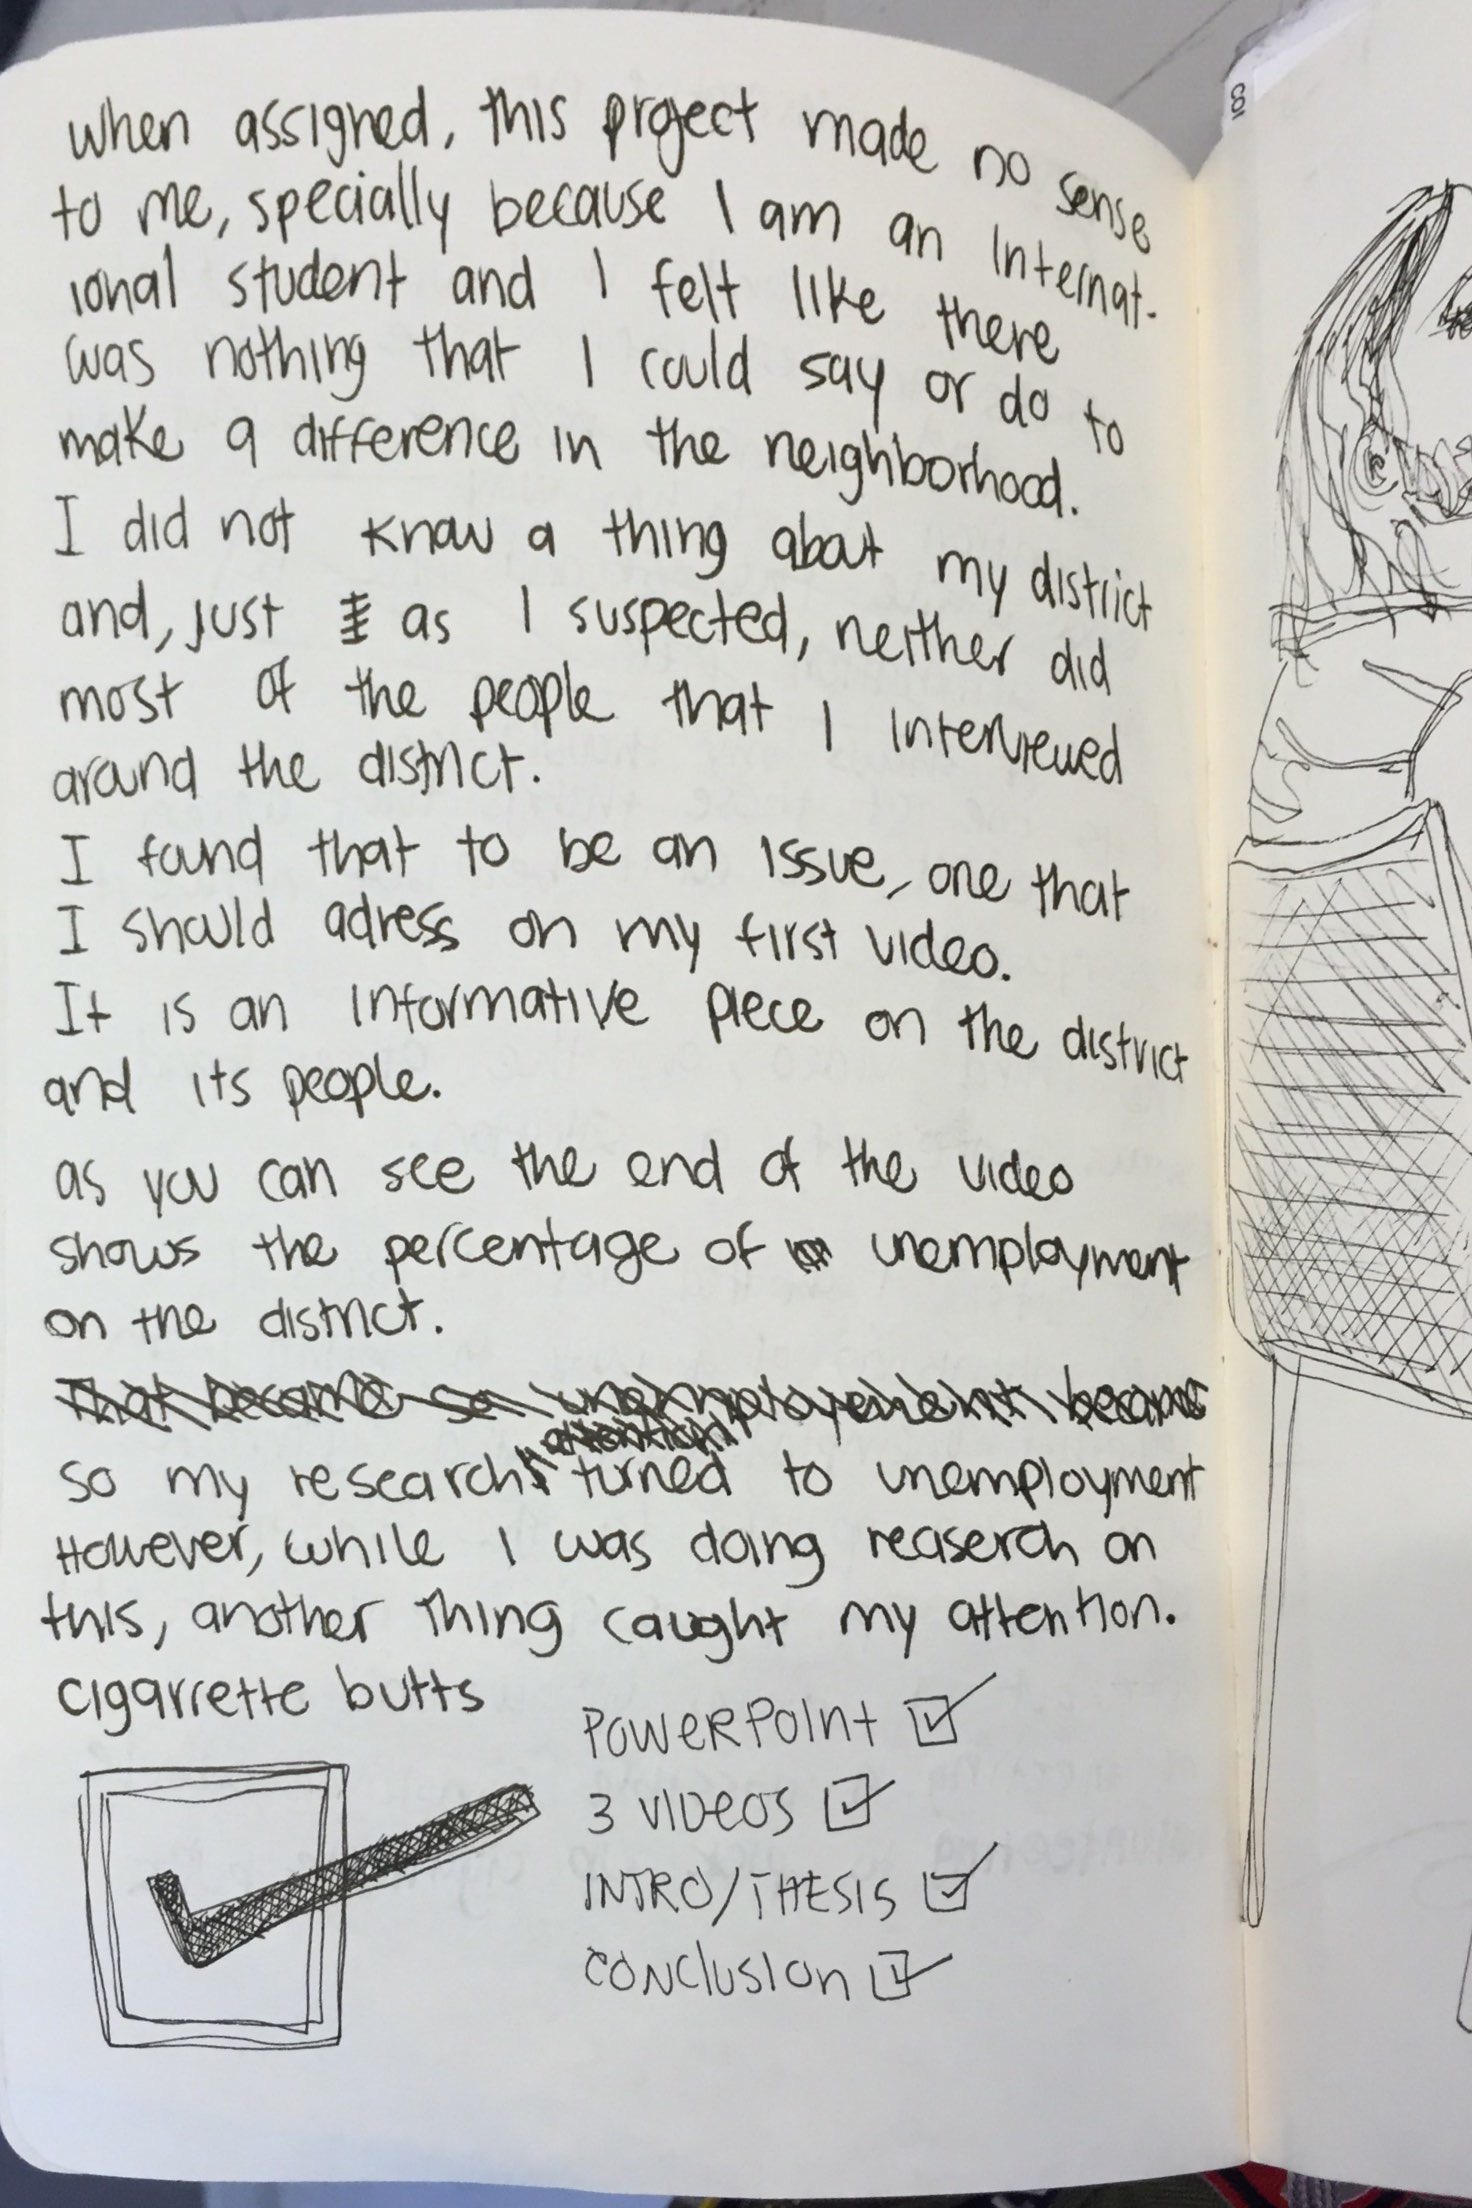 when assigned, this project made no sense
to me, specially because I am an internat-
ional student and I felt like there
was nothing that I could say or do to
make a difference in the neighborhood.
I did not know a thing about my district
and, just as I suspected, neither did
most of the people that I interviewed
around the district.
I found that to be an issue, one that
I should adress on my first video.
It is an informative piece on the district
and its people.
as you can see the end of the video
shows the percentage of unemployment
on the district.
That became so unemployement became
attention
so my research turned to unemployment
However, while I was doing reaserch on
this, another thing caught my attention.
cigarrette butts
POWERPOINT
3 VIDEOS
INTRO/THESIS
CONCLUSION
COI